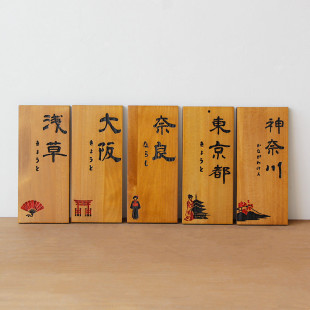 浅草
きょうと
大阪
きょうと
奈良
東京都
きょうと
神奈川
かながわけん